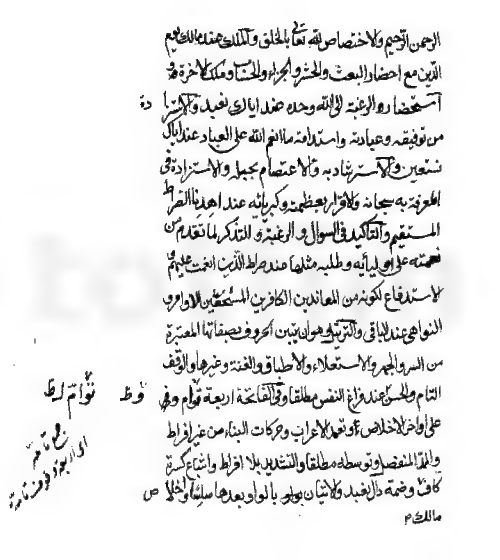 الرحمن الرحيم والاختصاص لله تعالى بالخلق والملك عند مالك يوم
الدين مع احضار البعث والحشر والجزاء والحساب وملك الاخرة و
استحضار والرغبة الى الله وحده عند اياك نعبد والاستزا دة
من توفيقه وعبادته واستدامة ما انعم الله على العباد عند اياك
نستعين والاسترشاد به والاعتصام بحبله والاستزادة في
المعرفة به سبحانه والاقرار بعظمته وكبريائه عند اهدنا الصراط
المستقيم والتاكيد في السوال والرغبة والتذكر لما تقدم من
نعمته على اوليائه وطلبه مثلها عند صراط الذين انعمت عليهم و
الاستدفاع لكونه من المعاندين الكافرين المستخفين بالاوامر و
النواهي عند الباقي والترتيل وهو ان يبين الحروف بصفاتها المعتبرة
من الهمس والجهر والاستعلاء والاطباق والغنة وغيرها والوقف
التام والحسن عند فراغ النفس مطلقا وفي الفاتحة اربعة توام وفي
على اواخر الاخلاص وتعمد الاعراب وحركات البناء من غير افراط
والمد المنفصل وتوسطه مطلقا والتشديد بلا افراط واشباع كسرة
كاف وضمة دال نعبد والاتيان بالواو بعدها سلسا واخلا ص
مالك